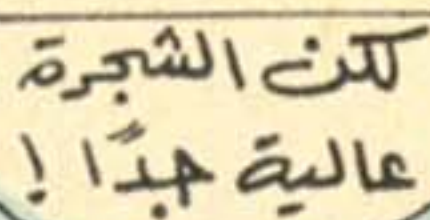 لكن الشجرة
عالية جدًا !